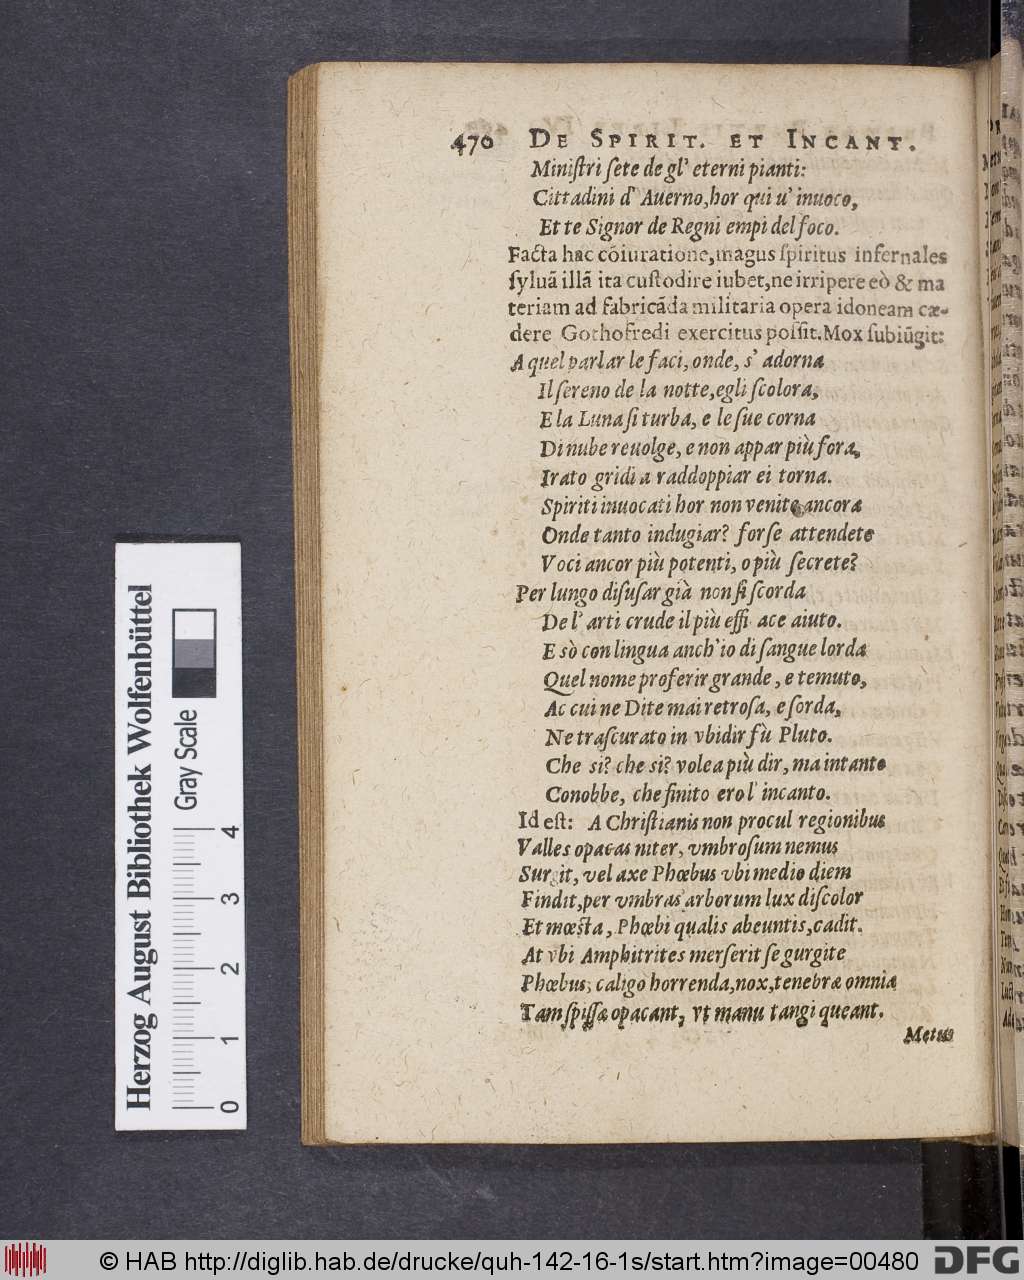 470 DE SPIRIT. ET INCANT.
Miniſtri ſete de gl' eterni pianti:
Cittadini d' Auerno, hor qui u' inuoco,
Et te Signor de Regni empi del foco.
Facta hac cõiuratione, magus ſpiritus infernales
ſyluã illã ita cuſtodire iubet, ne irripere eò & ma
teriam ad fabricãda militaria opera idoneam cæ-
dere Gothofredi exercitus poſſit. Mox ſubiũgit:
A quel parlar le faci, onde, s' adorna
Il ſereno de la notte, egli ſcolora,
E la Luna ſi turba, e le ſue corna
Di nube reuolge, e non appar più fora,
Irato gridi a raddoppiar ei torna.
Spiriti inuocati hor non venite ancora
Onde tanto indugiar? forſe attendete
Voci ancor più potenti, o più ſecrete?
Per lungo diſuſar già non ſi ſcorda
De l' arti crude il più effi ace aiuto.
E sò con lingua anch'io di ſangue lorda
Quel nome proferir grande, e temuto,
Ac cui ne Dite mai retroſa, e ſorda,
Ne traſcurato in vbidir fù Pluto.
Che si? che si? volea più dir, ma intanto
Conobbe, che finito ero l' incanto.
Id eſt: A Chriſtianis non procul regionibus
Valles opacas inter, vmbroſum nemus
Surgit, vel axe Phœbus vbi medio diem
Findit, per vmbras arborum lux diſcolor
Et mœſta, Phœbi qualis abeuntis, cadit.
At vbi Amphitrites merſerit ſe gurgite
Phœbus, caligo horrenda, nox, tenebræ omnia
Tam ſpiſſæ opacant, vt manu tangi queant.
Metus
Herzog August Bibliothek Wolfenbüttel
Gray Scale
0 1 2 3 4
© HAB http://diglib.hab.de/drucke/quh-142-16-1s/start.htm?image=00480
DFG